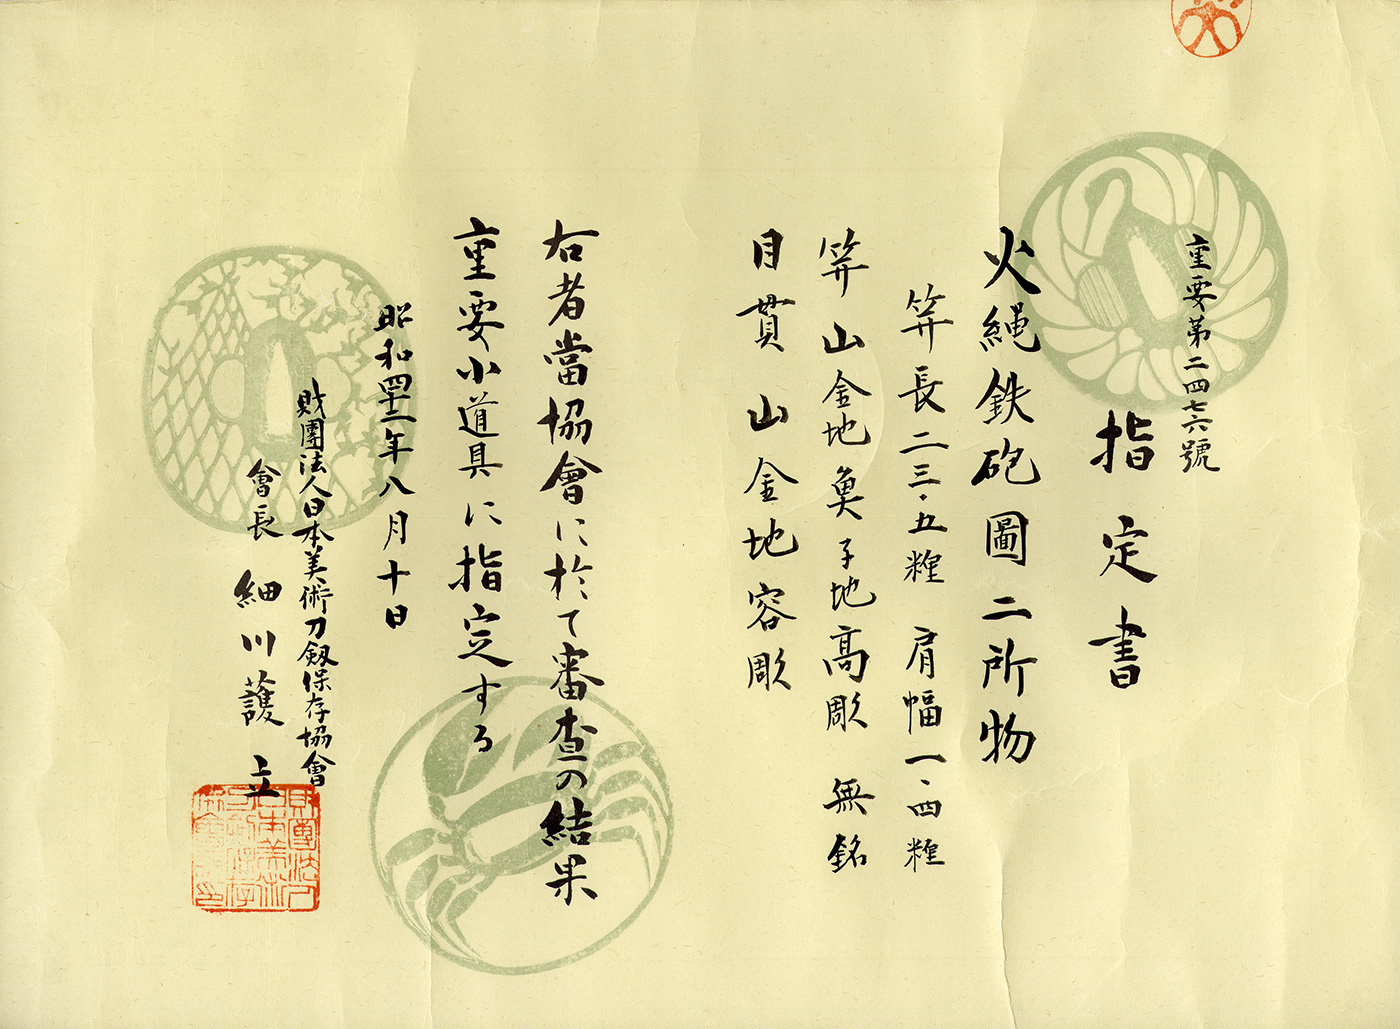 重要第二四七六號
指定書
火縄鉄砲圖二所物
笄長二三・五糎 肩幅一・四糎
笄 山金地魚子地高彫 無銘
目貫 山金地容彫
右者當協會に於て審査の結果
重要小道具に指定する
昭和四十二年八月十日
財團法人日本美術刀釼保存協會
會長 細川護立